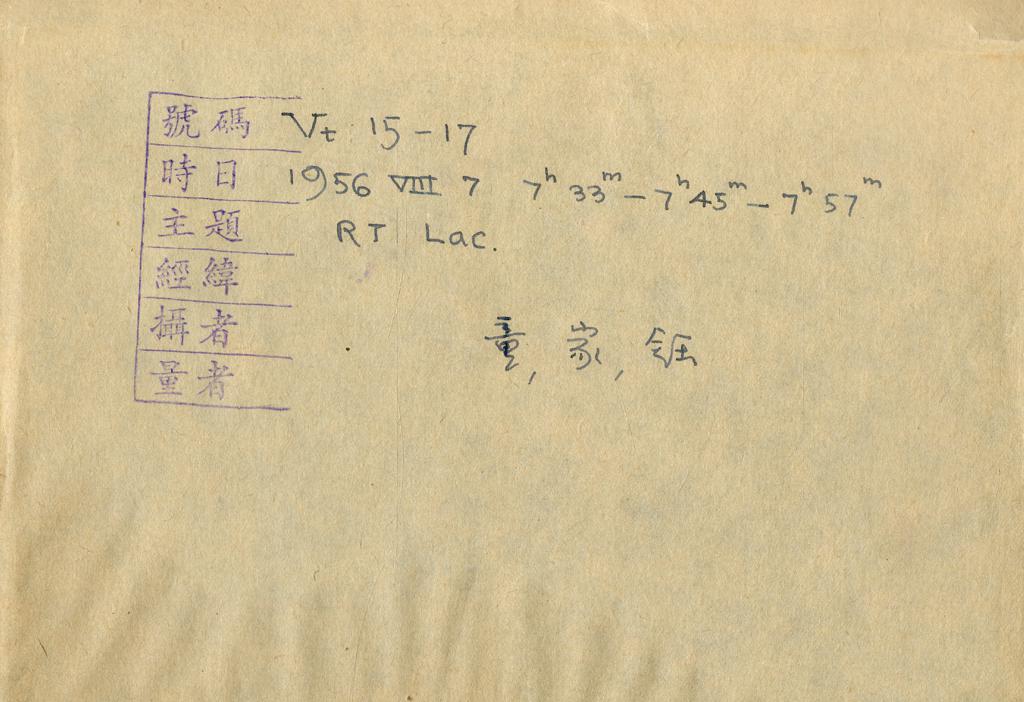 號碼 Vt 15-17
時日 1956 VIII 7 7h 33m - 7h 45m - 7h 57m
主題 RT Lac.
經緯
攝者
童, 家, 鈺
量者